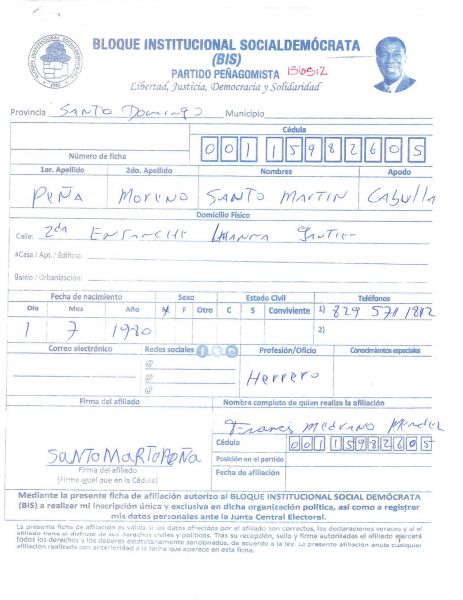 BLOQUE INSTITUCIONAL SOCIALDEMÓCRATA
(BIS)
PARTIDO PEÑAGOMISTA 156512
Libertad, Justicia, Democracia y Solidaridad
Provincia Santo Domingo Municipio
Cédula
Número de ficha 00115982605
1er. Apellido 2do. Apellido Nombres Apodo
Peña Moreno Santo Martin
Domicilio Físico
Calle: 2da Ensanche
#Casa / Apt. / Edificio:
Barrio / Urbanización:
Fecha de nacimiento Sexo Estado Civil Teléfonos
Día Mes Año M F Otro C S Conviviente 1) 829 571 1812
1 7 1920 2)
Correo electrónico Redes sociales Profesión/Oficio Conocimientos especiales
@
@
@
Herrero
Firma del afiliado Nombre completo de quien realiza la afiliación
Francis Medrano Mendez
Cédula 00115982605
SANTO MARTO PEÑA
Posición en el partido
Firma del afiliado
(Firma igual que en la Cédula)
Fecha de afiliación
Mediante la presente ficha de afiliación autorizo al BLOQUE INSTITUCIONAL SOCIAL DEMÓCRATA
(BIS) a realizar mi inscripción única y exclusiva en dicha organización política, así como a registrar
mis datos personales ante la Junta Central Electoral.
La presente ficha de afiliación es válida si los datos ofrecidos por el afiliado son correctos, las declaraciones veraces y si el
afiliado tiene el disfrute de sus derechos civiles y políticos. Tras su recepción, sello y firma autorizadas el afiliado ejercerá
todos los derechos y los deberes estatutariamente sancionados, de acuerdo a la ley. La presente afiliación anula cualquier
afiliación realizada con anterioridad a la fecha que aparece en esta ficha.